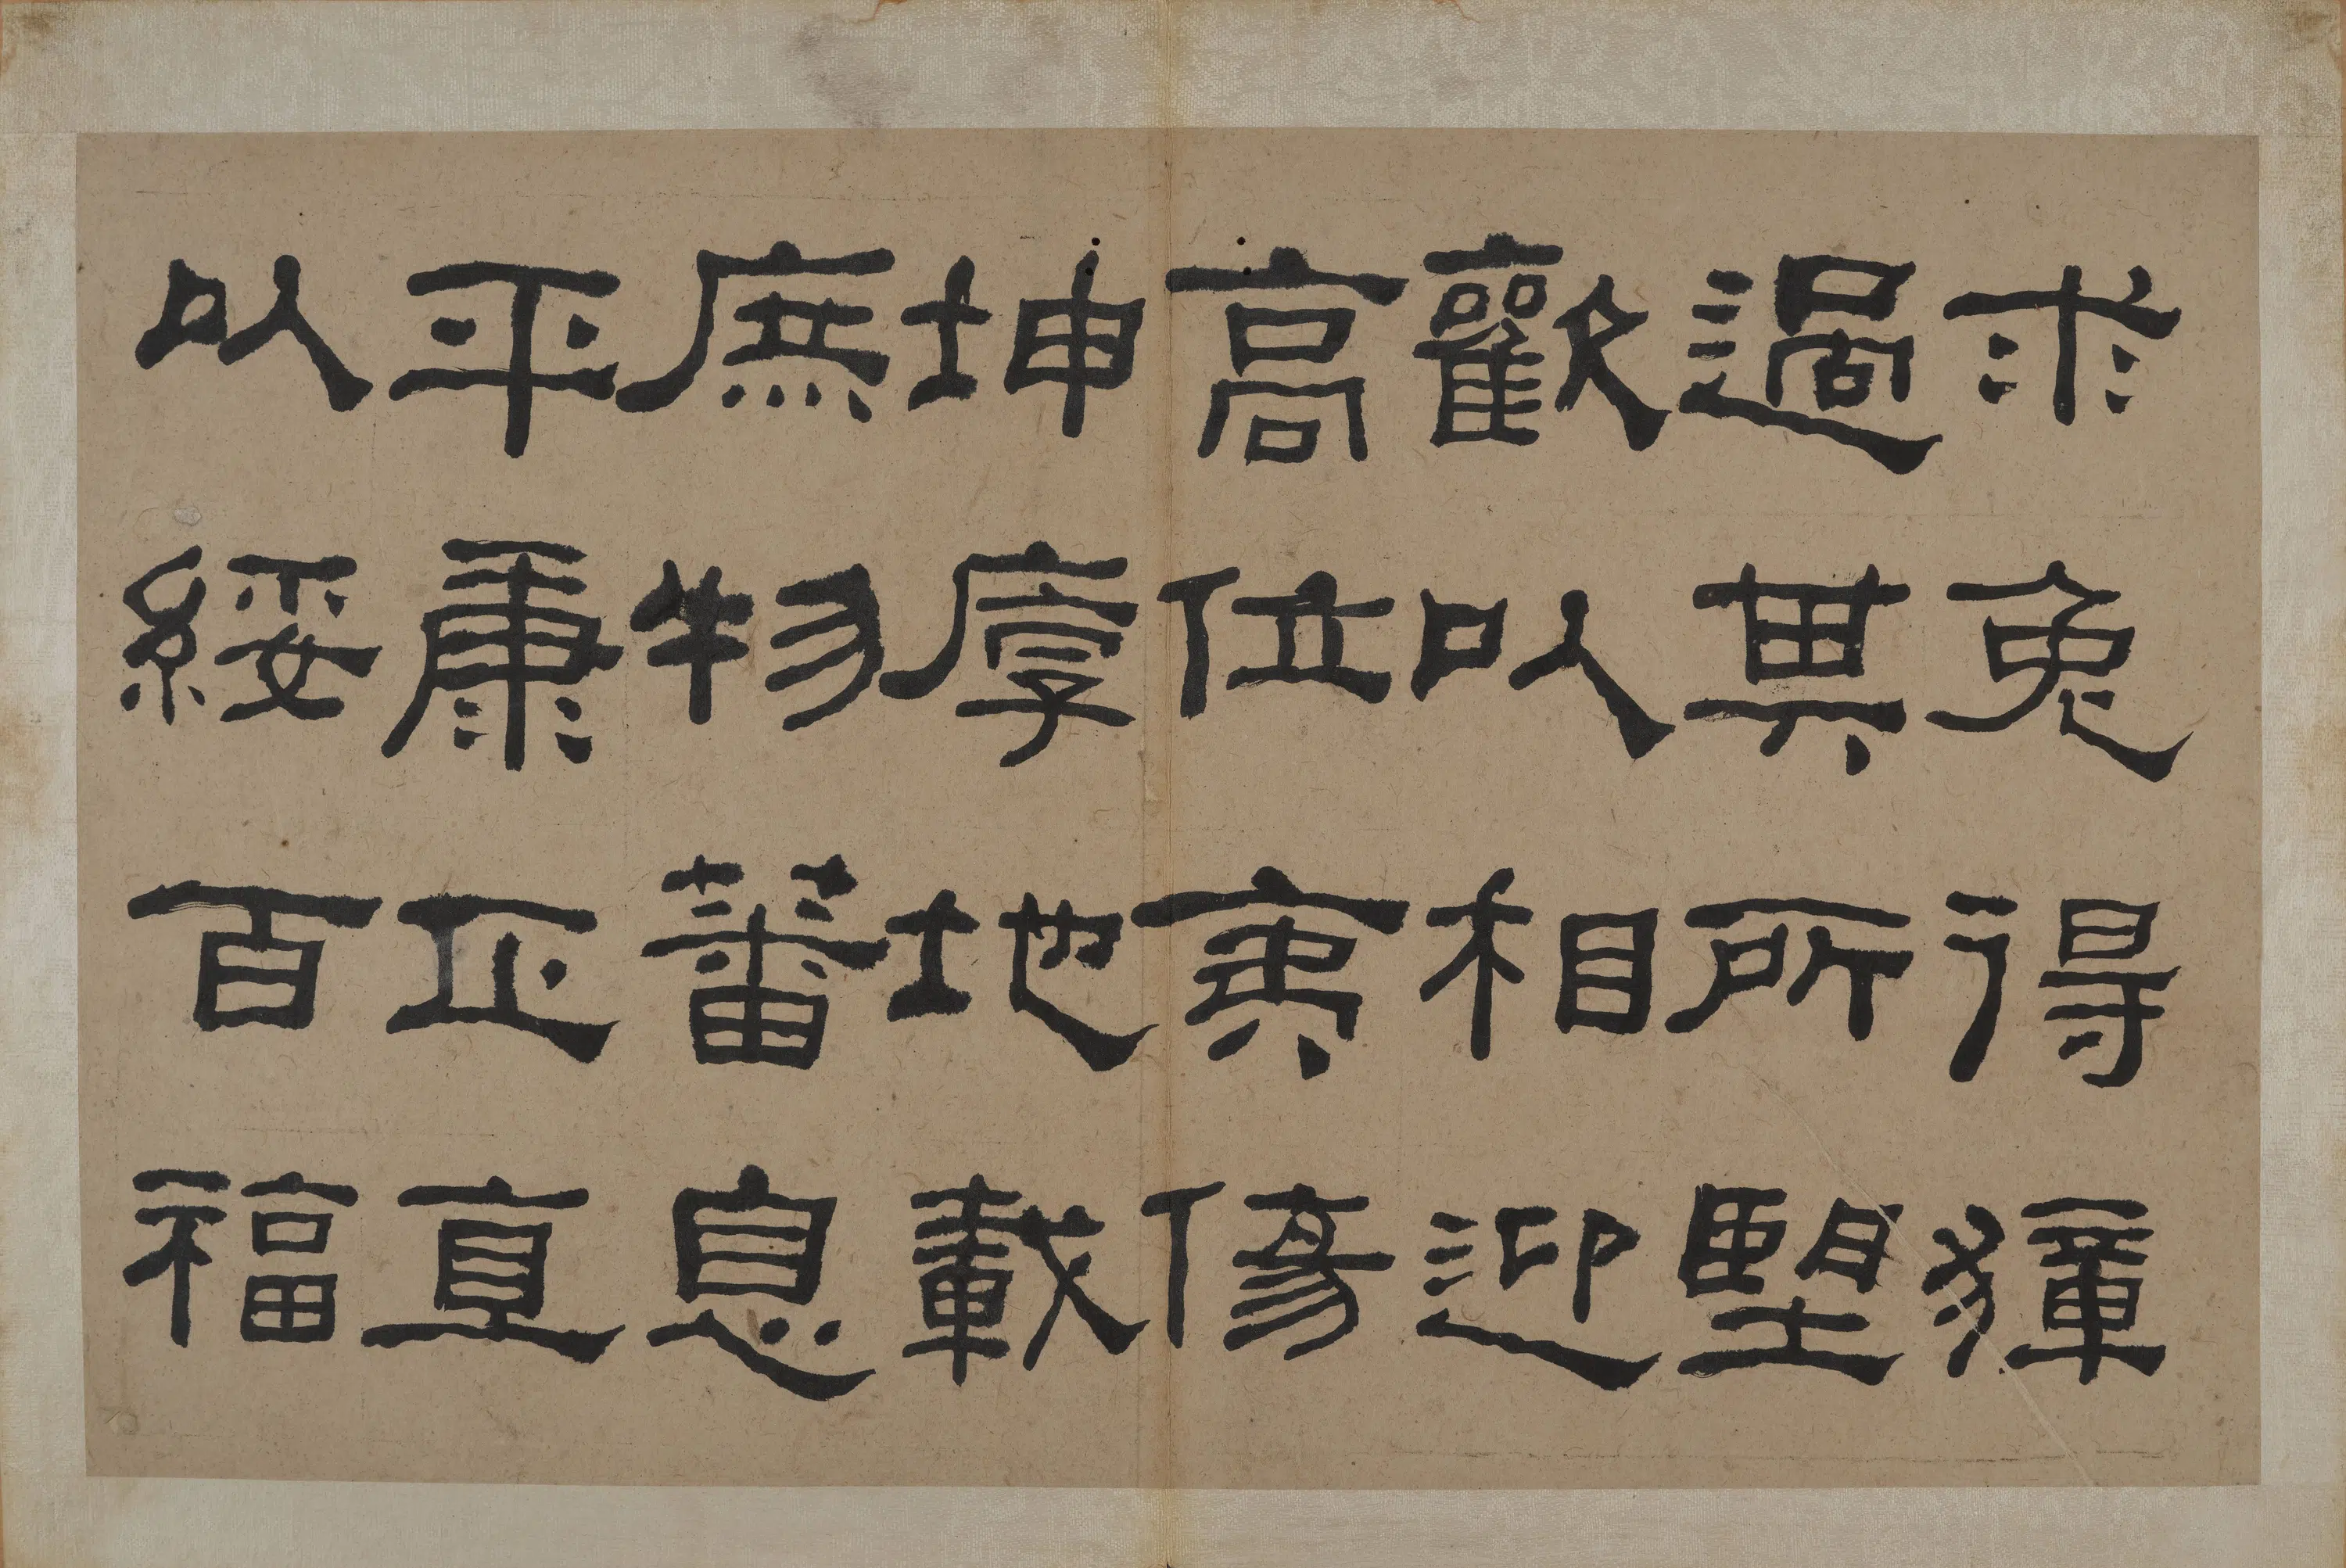 求兔得獐
過其所望
歡以相迎
高位夷傪
坤厚地載
庶物蕃息
平康正直
以綏百福